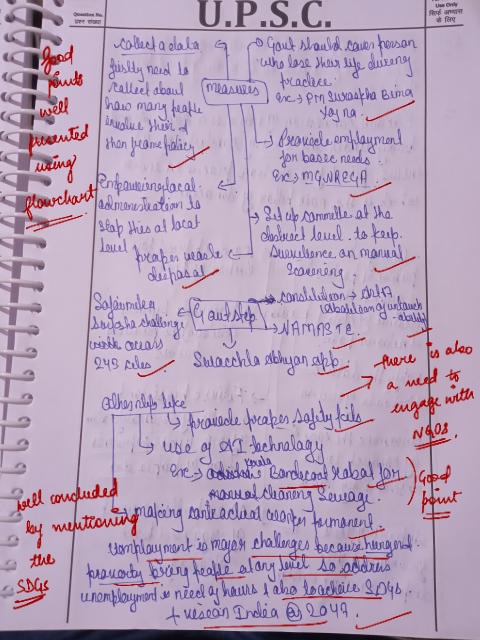 Question No.
प्रश्न संख्या
U.P.S.C.
Use Only
सिर्फ अभ्यास
के लिए
Good
points
well
presented
using
flowchart
measures
collect a data
firstly need to
collect about
how many people
involve their &
than frame policy
Empowering local
administration to
stop this at local
level
proper waste
disposal
Govt should cover person
who lose their life during
practice.
Ex:- PM Suraspha Bima
Yojna.
Provide employment
for basic needs.
Ex:- MGNREGA
Set up committe at the
district level. to keep
survillence on manual
scavening.
Govt step
Safaimitra
Suraksha challenge
work across
243 cities
constitution → Art 17
NAMASTE
Swacchta Abhiyan app.
there is also
a need to
engage with
NGOs
Other step like
→ provide proper safety kits
→ use of AI technology
Ex:- Bandicoot Robot for
manual cleaning sewage.
Good
point
→ making contractual worker permanent.
Unemployment is major challenges because hunger &
poverty bring people at any level so address
unemployment is need of hours & also to achieve SDGs
+ vision India @ 2047.
well concluded
by mentioning
the
SDGs